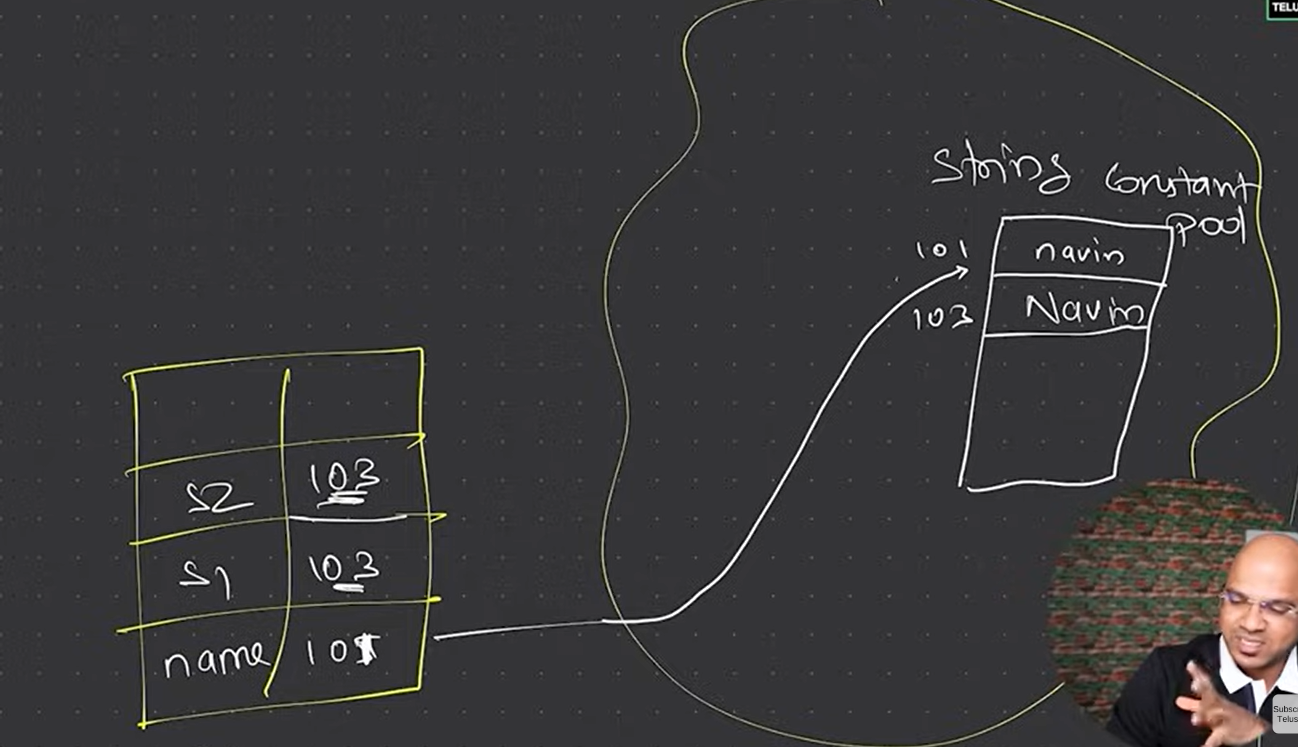 TELU
String Constant
pool
101 navin
103 Navin
S2 103
S1 103
name 101
Subsc
Telus